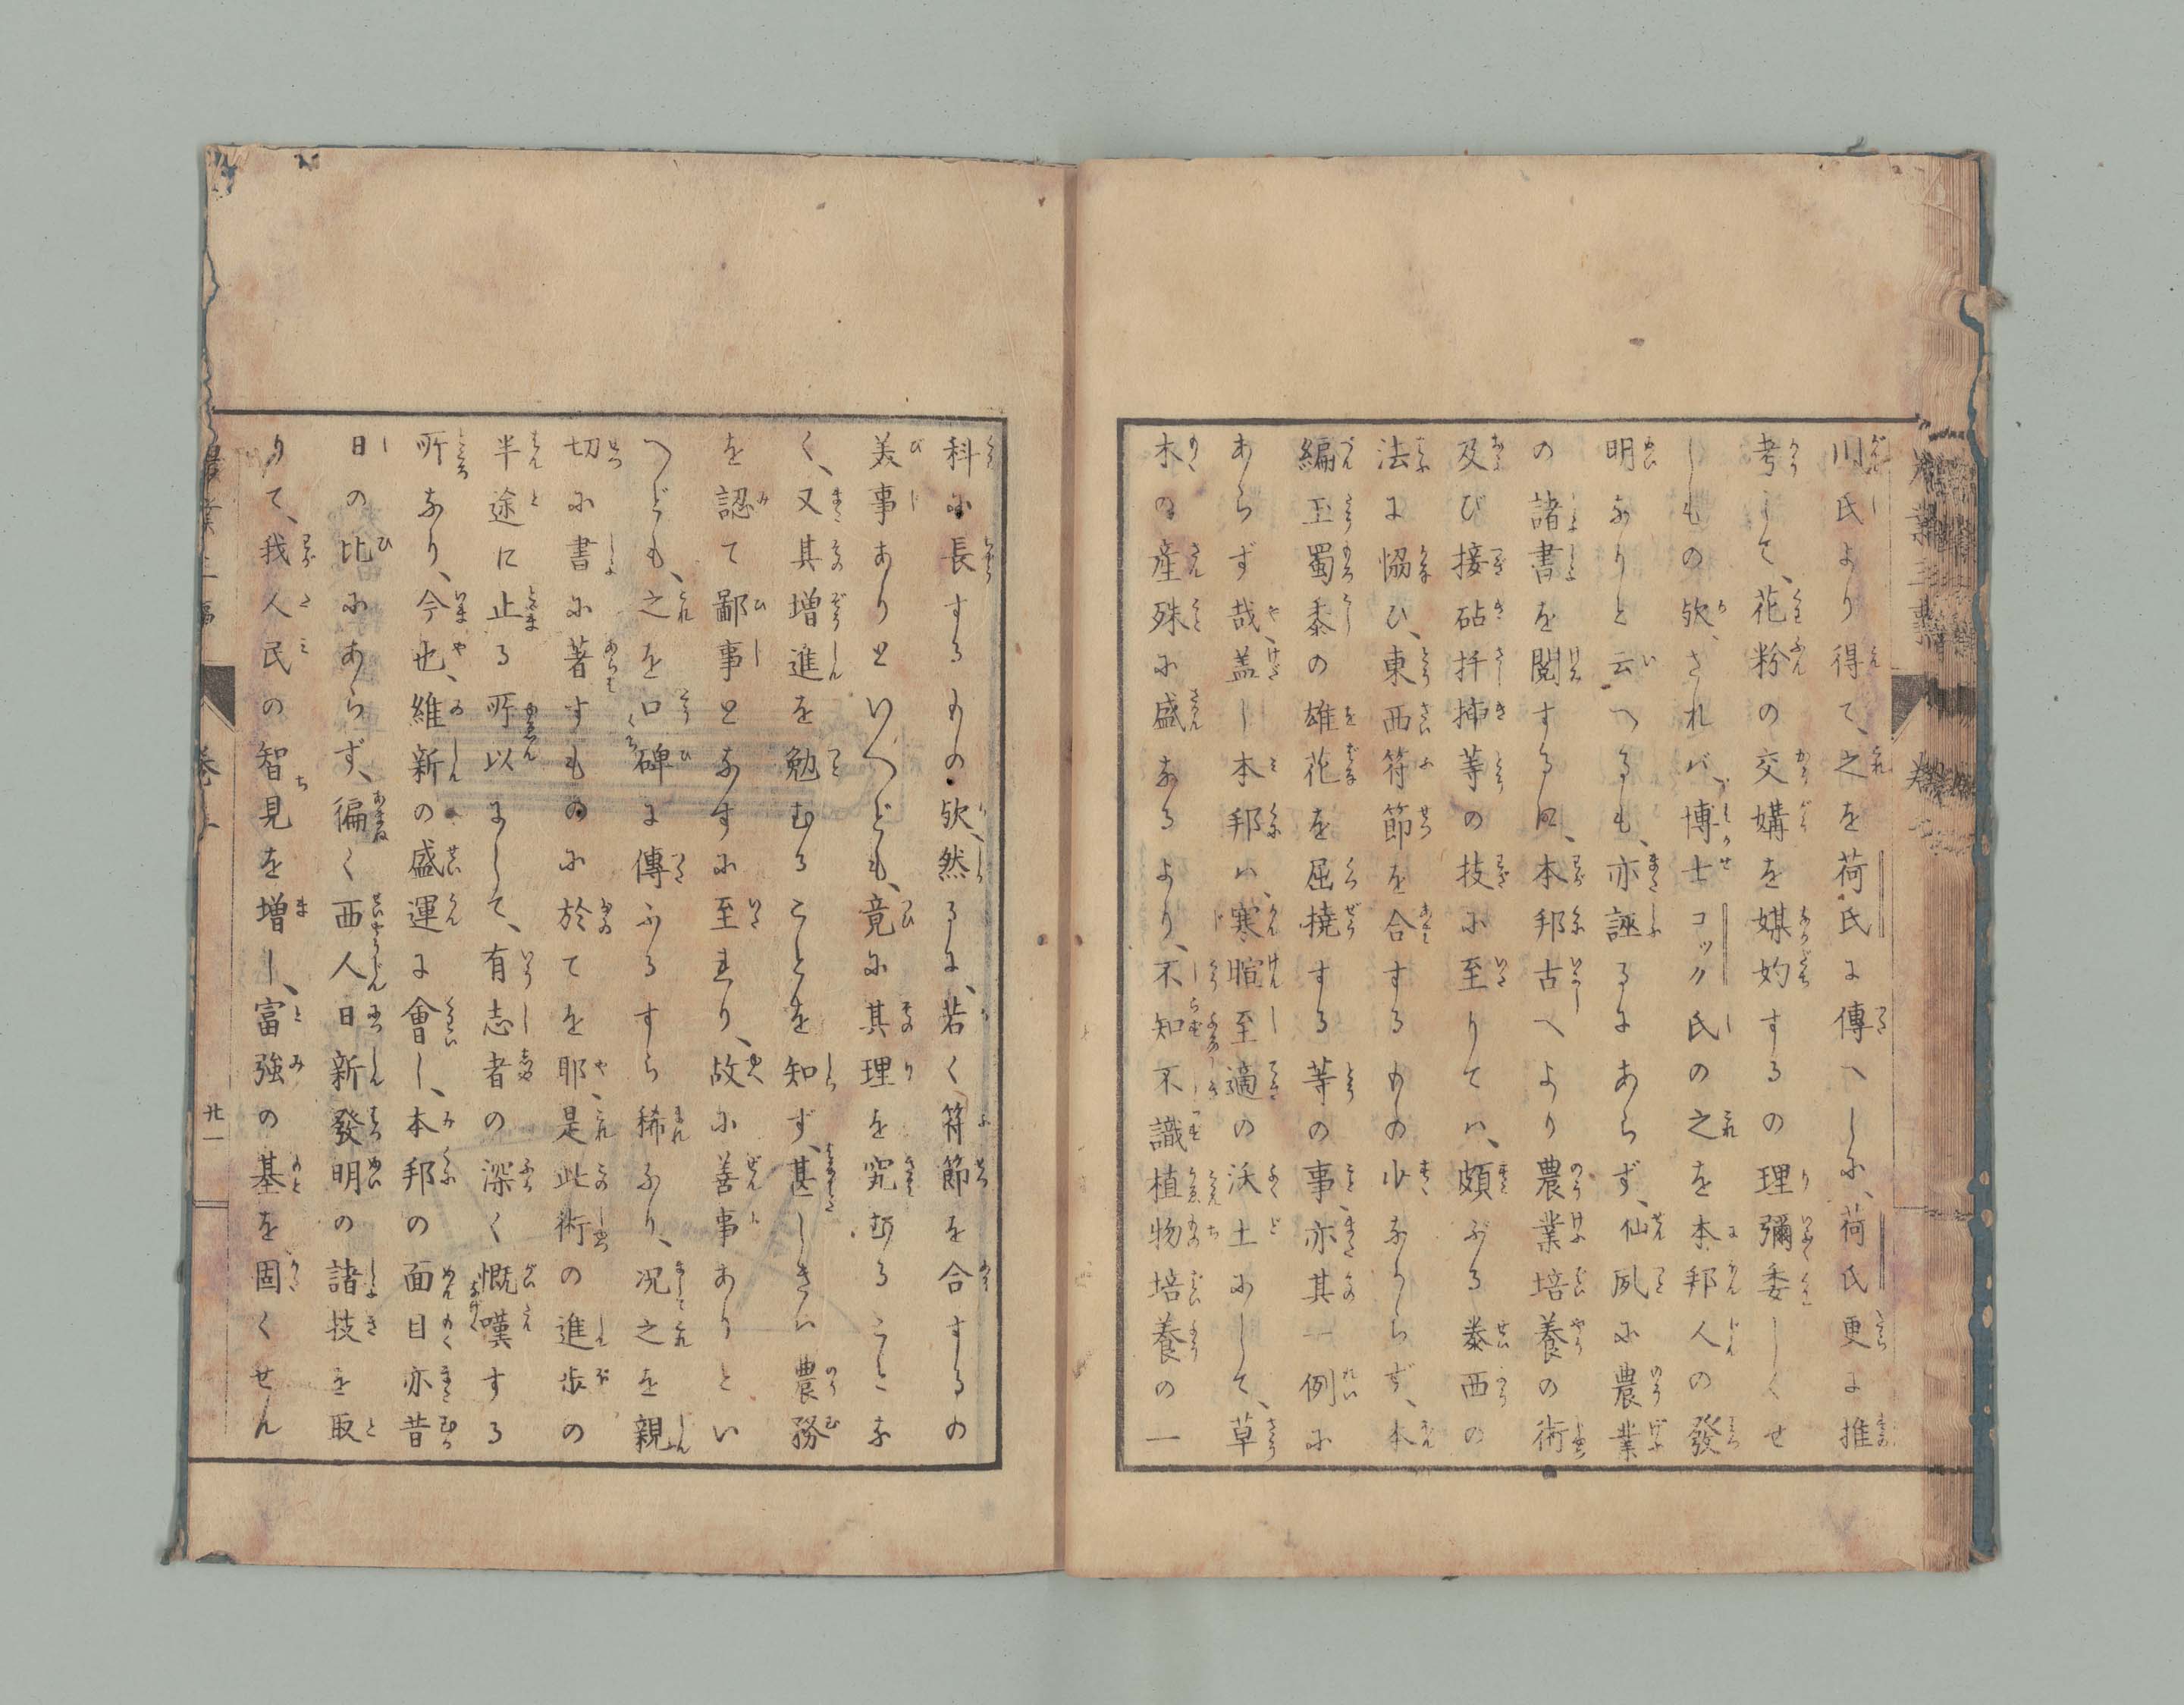 川氏より得て、之を荷氏に傳へしに、荷氏更に推
考して、花粉の交媾を媒妁するの理彌委しくせ
しもの欤、されバ、博士コック氏の之を本邦人の發
明なりと云へるも、亦誣るにあらず、仙夙に農業
の諸書を閲するに、本邦古へより農業培養の術
及び接砧扦挿等の技に至りてハ、頗ぶる泰西の
法に恊ひ、東西符節を合するもの少なからず、本
編玉蜀黍の雄花を屈撓する等の事、亦其一例に
あらず哉、盖し本邦ハ、寒暄至適の沃土にして、草
木の産殊に盛なるより、不知不識植物培養の一
科に長するもの欤、然るに、若く符節を合するの
美事ありといへども、竟に其理を究むることな
く、又其増進を勉むることを知ず、甚しきハ農務
を認て鄙事となすに至れり、故に善事ありとい
へども、之を口碑に傳ふるすら稀なり、况之を親
切に書に著すものに於てを耶、是此術の進歩の
半途に止る所以にして、有志者の深く慨嘆する
所なり、今也、維新の盛運に會し、本邦の面目亦昔
日の比にあらず、徧く西人日新發明の諸技を取
りて、我人民の智見を増し、富強の基を固くせん
農業三事 卷上
廿一